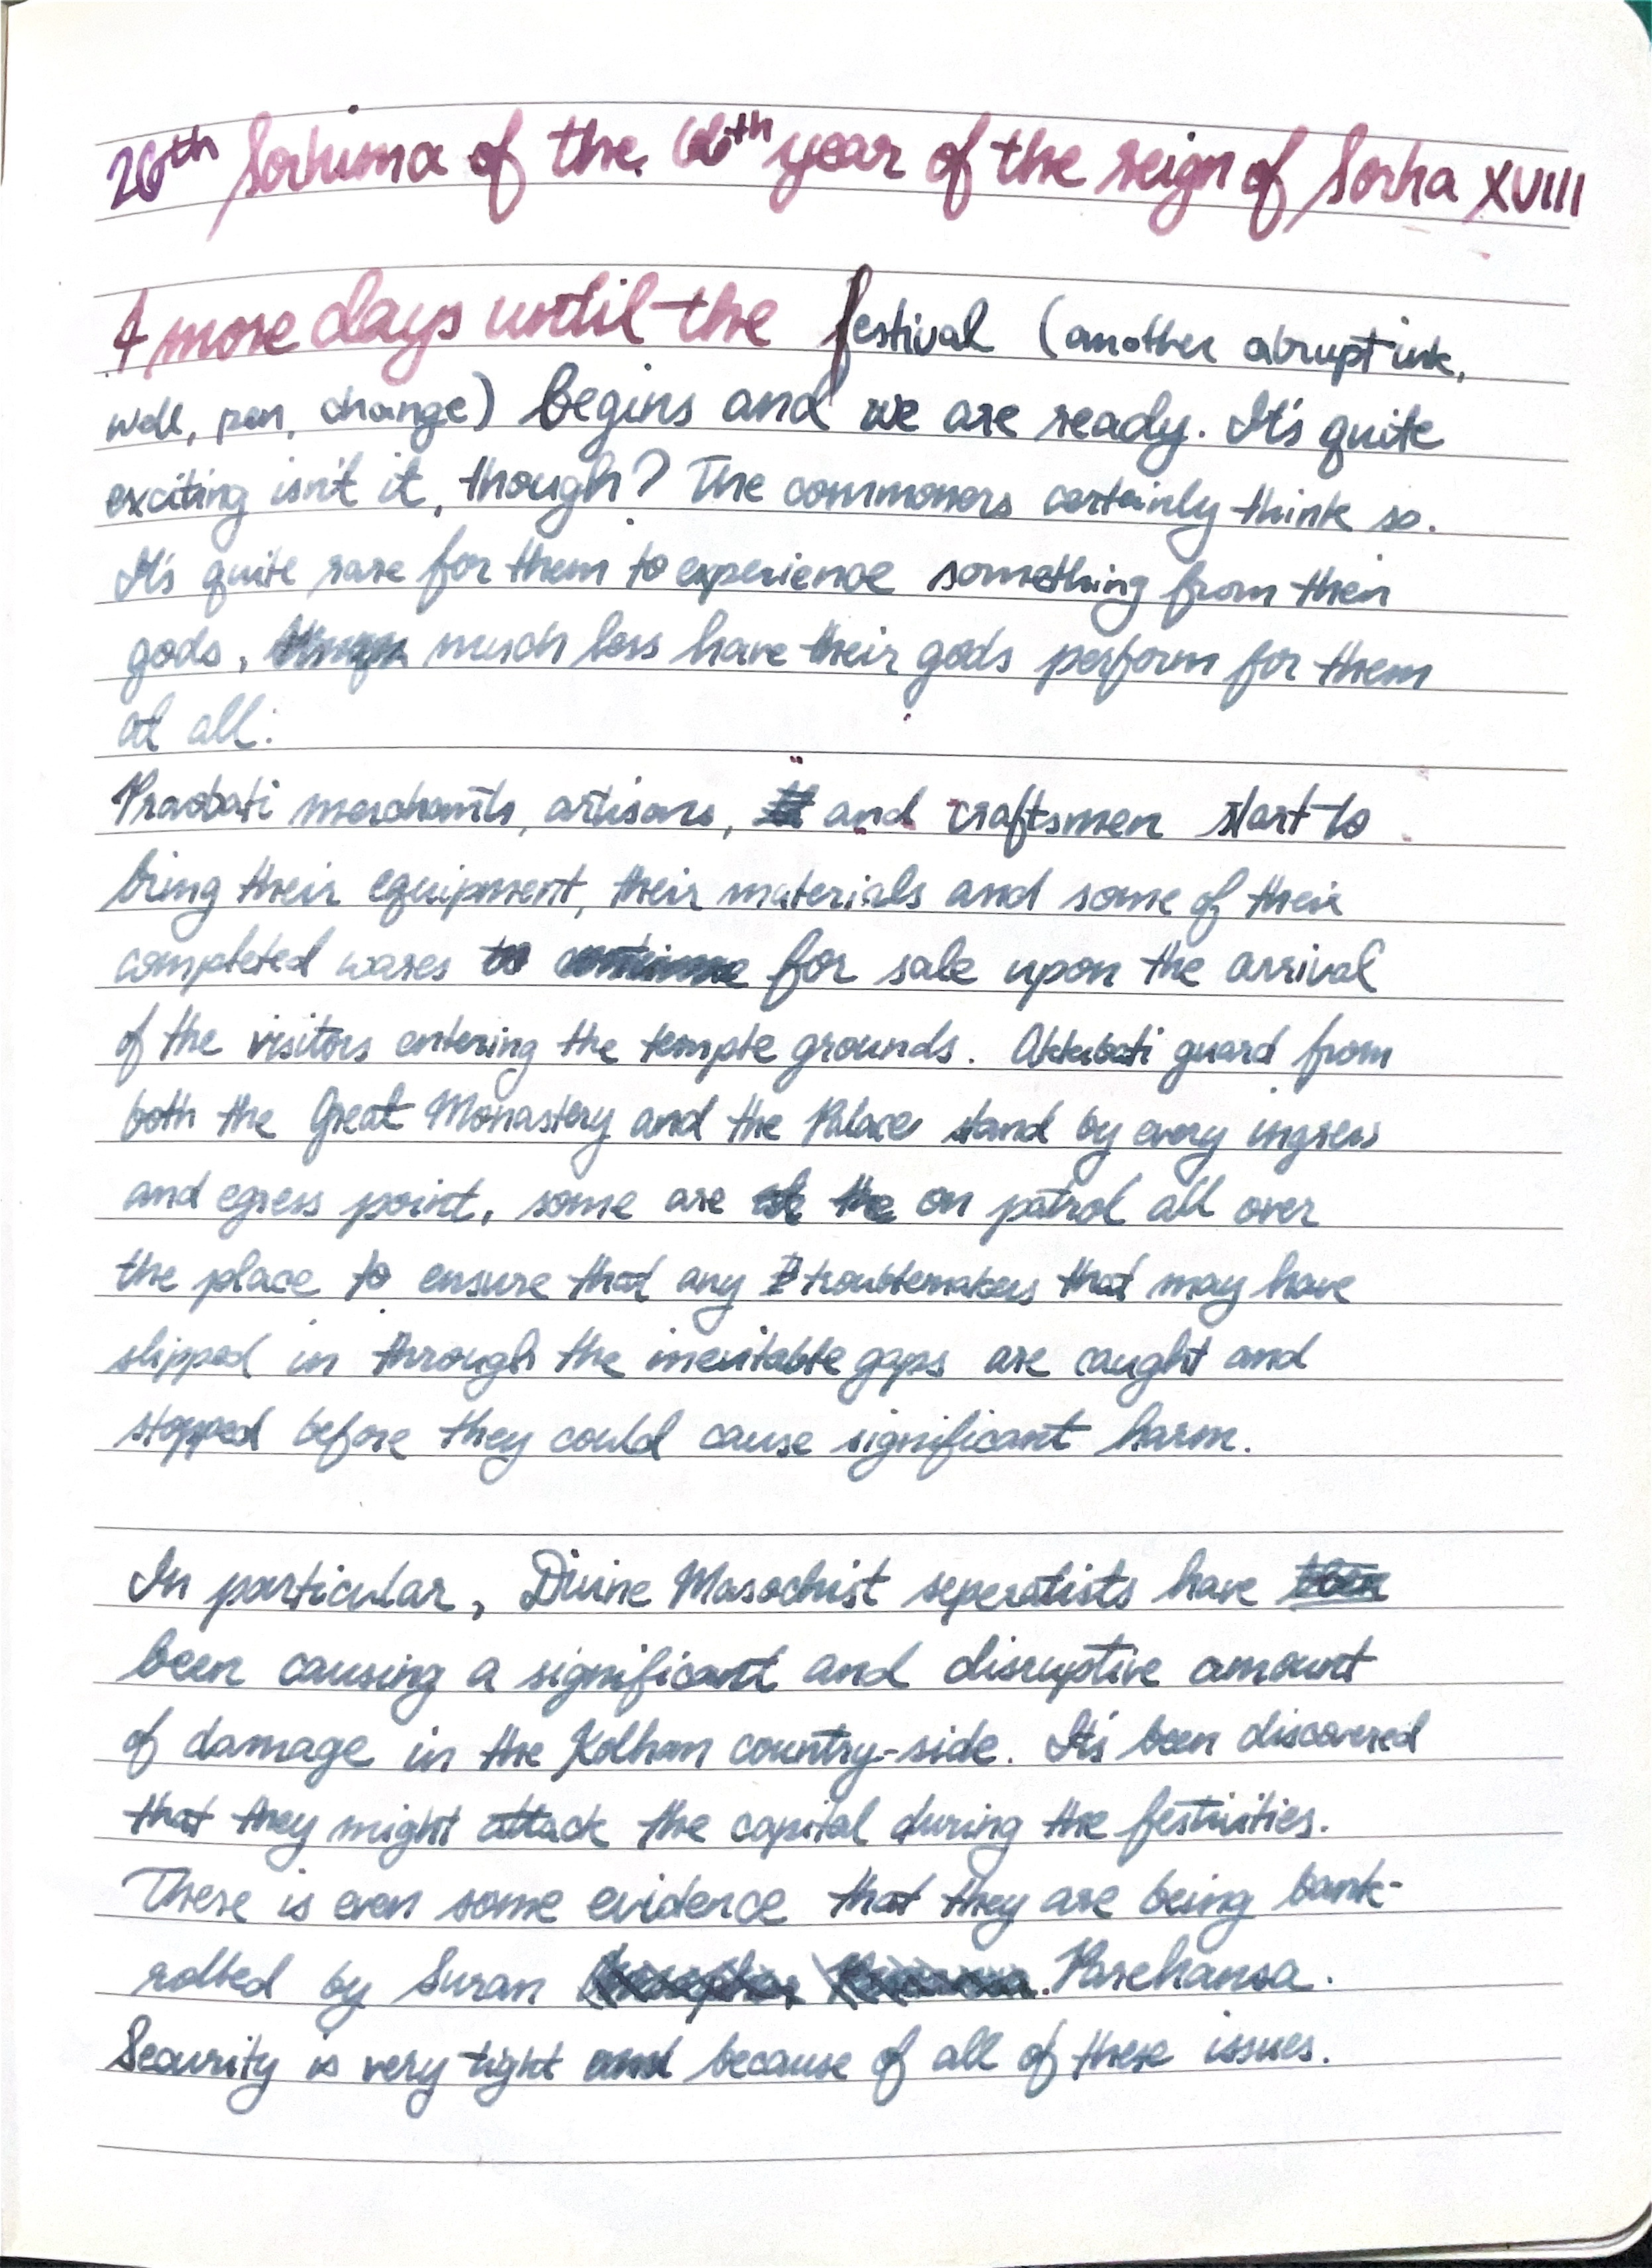 26th Sorhima of the 66th year of the reign of Sorha XVIII
4 more days until the festival (another abrupt ink,
well, pen, change) begins and we are ready. It's quite
exciting isn't it, though? The commoners certainly think so.
It's quite rare for them to experience something from their
gods, much less have their gods perform for them
at all.
Pradbati merchants, artisans, and craftsmen start to
bring their equipment, their materials and some of their
completed wares for sale upon the arrival
of the visitors entering the temple grounds. Akkubati guard from
both the Great Monastery and the Palace stand by every ingress
and egress point, some are on patrol all over
the place to ensure that any troublemakers that may have
slipped in through the inevitable gaps are caught and
stopped before they could cause significant harm.
In particular, Divine Masochist seperatists have
been causing a significant and disruptive amount
of damage in the Kolhan country-side. It's been discovered
that they might attack the capital during the festivities.
There is even some evidence that they are being bank-
rolled by Suran Parehansa.
Security is very tight because of all of these issues.